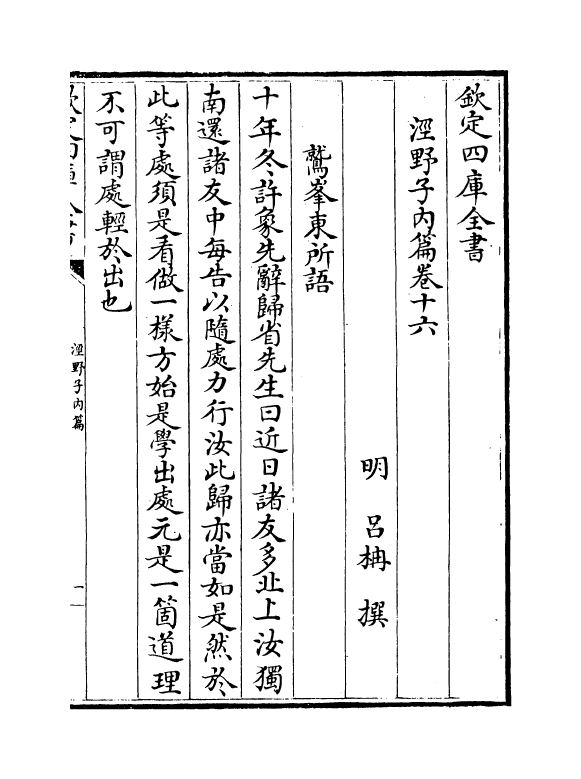 欽定四庫全書
涇野子內篇卷十六
明 呂柟 撰
鷲峯東所語
十年冬許象先辭歸省先生曰近日諸友多北上汝獨
南還諸友中每告以隨處力行汝此歸亦當如是然於
此等處須是看做一樣方始是學出處元是一箇道理
不可謂處輕於出也
涇野子內篇
一